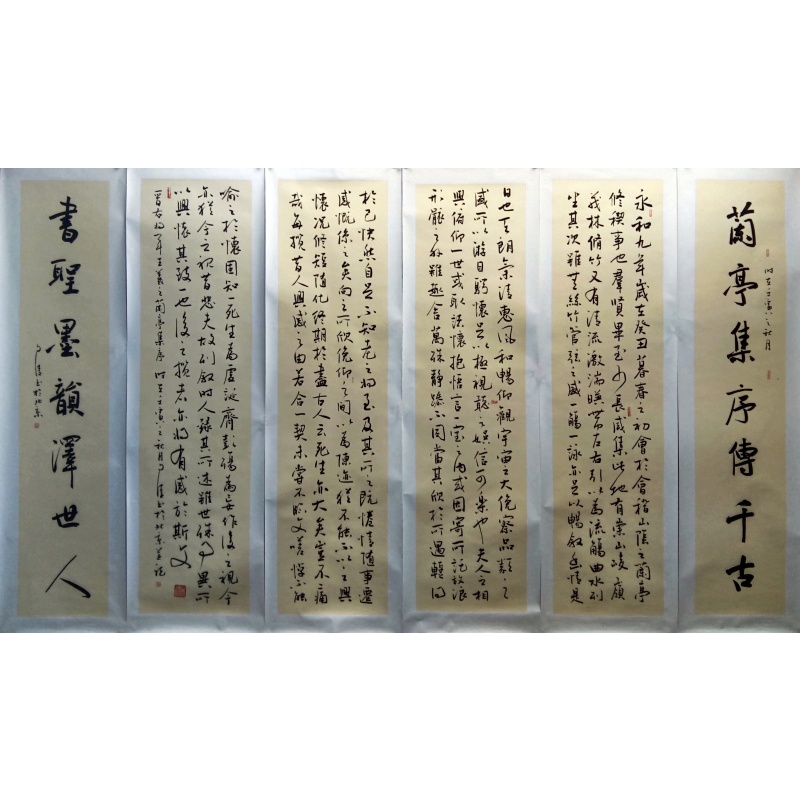 蘭亭集序傳千古
時在壬寅之秋月
永和九年歲在癸丑暮春之初會於會稽山陰之蘭亭
修稧事也羣賢畢至少長咸集此地有崇山峻嶺
茂林脩竹又有清流激湍暎帶左右引以為流觴曲水列
坐其次雖無絲竹管弦之盛一觴一詠亦足以暢敘幽情是
日也天朗氣清惠風和暢仰觀宇宙之大俛察品類之
盛所以游目騁懷足以極視聽之娛信可樂也夫人之相
與俯仰一世或取諸懷抱悟言一室之內或因寄所託放浪
形骸之外雖趣舍萬殊靜躁不同當其欣於所遇蹔得
於己快然自足不知老之將至及其所之既惓情隨事遷
感慨係之矣向之所欣俛仰之間以為陳迹猶不能不以之興
懷況修短隨化終期於盡古人云死生亦大矣豈不痛
哉每攬昔人興感之由若合一契未嘗不臨文嗟悼不能
喻之於懷固知一死生為虛誕齊彭殤為妄作後之視今
亦猶今之視昔悲夫故列敘時人錄其所述雖世殊事異所
以興懷其致一也後之攬者亦將有感於斯文
晉右將軍王羲之蘭亭集序 時在壬寅之秋月 書於北京
書聖墨韻澤世人
書於北京